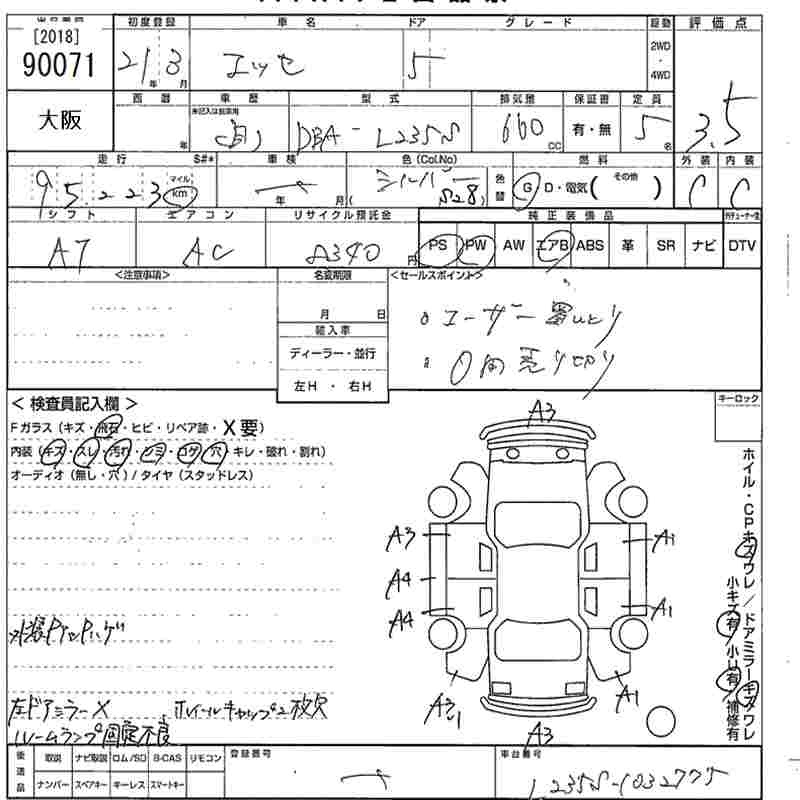 [2018]
90071
大阪
初度登録 車名 ドア グレード 駆動 評価点
21年 3月 エッセ 5 2WD・4WD 3.5
西暦 車歴 型式 排気量 保証書 定員
未記入は自家用
年 自 DBA-L235S 660cc 有・無 5名
走行 S#* 車検 色(Col.No) 燃料 外装 内装
95223 マイル km 年 月 シルバー S28 色替 G・D・電気( その他 ) C C
シフト エアコン リサイクル預託金 純正装備品
AT AC 円 PS PW AW エアB ABS 革 SR ナビ DTV
<注意事項> 名変期限 <セールスポイント>
月 日
輸入車
ディーラー・並行
左H・右H
ユーザー買いとり
0円売り切り
< 検査員記入欄 > キーロック
Fガラス(キズ・飛石・ヒビ・リペア跡・X要)
内装(キズ・スレ・汚れ・シミ・コゲ・穴・キレ・破れ・割れ)
オーディオ(無し・穴)/タイヤ(スタッドレス)
左ドアミラーX ホイールキャップ2枚欠
ルームランプ固定不良
A3
A3 A1
A4
A4 A1
A3 1 A1
A3
ホイル・CPキズワレ/ドアミラーキズワレ
小キズ有/小U有/補修有
後送品 取説 ナビ取説 ロム/SD B-CAS リモコン 登録番号 車台番号
ナンバー スペアキー キーレス スマートキー L235S-1032775